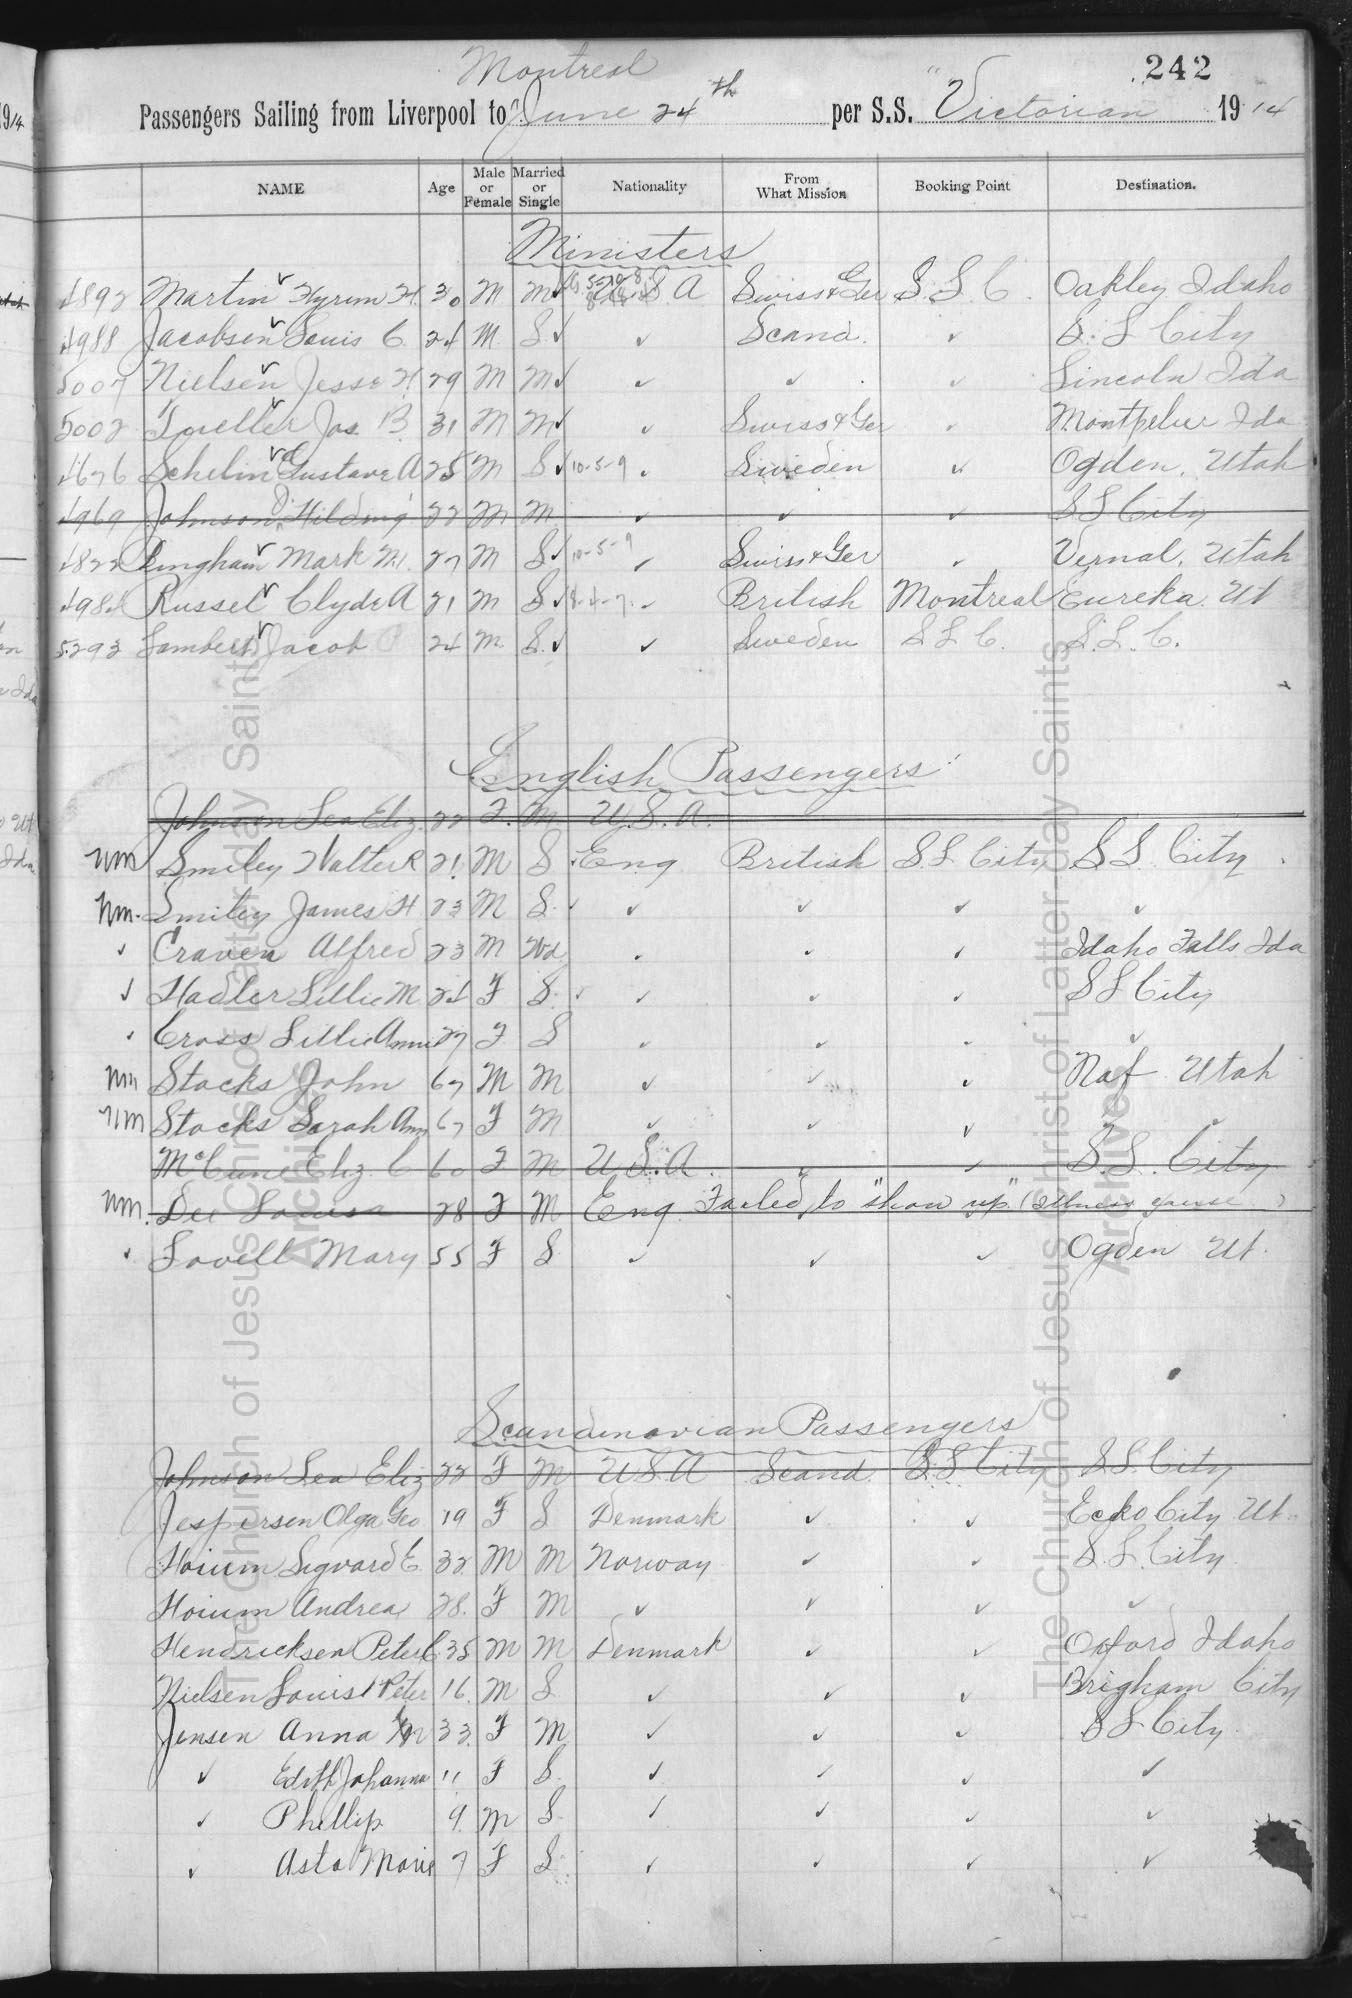 242
Montreal
Passengers Sailing from Liverpool to June 24th per S.S. "Victorian 1914
NAME Age Male or Female Married or Single Nationality From What Mission Booking Point Destination.
Ministers
4892 Martin Hyrum H. 30 M M ✓ U.S.A Swiss & Ger S. L. C. Oakley Idaho
4988 Jacobsen Louis C. 24 M. S. ✓ ✓ Scand. ✓ S. L City
5007 Nielsen Jesse H. 29 M M ✓ ✓ ✓ ✓ Lincoln Ida
5002 Jos. B. 31 M M ✓ ✓ Swiss & Ger ✓ Montpelier Ida
4676 Schelin Gustave A 25 M S ✓ 10-5-9 ✓ Sweden ✓ Ogden, Utah
4969 Johnson Hilding 22 M M ✓ ✓ ✓ S L City
4822 Bingham Mark M. 27 M S ✓ 10-5-9 ✓ Swiss & Ger ✓ Vernal, Utah
4984 Russel Clyde A 21 M S ✓ 8-4-7. ✓ British Montreal Eureka Ut
5293 Lambert Jacob P 24 M. S. ✓ ✓ Sweden S L C. S. L. C.
English Passengers
Johnson Lea Eliz. 22 F. M U.S.A.
nm Smiley Walter R 21 M S ✓ Eng British S L City S L City
nm. Smiley James H 23 M S. ✓ ✓ ✓ ✓ ✓
✓ Craven Alfred 23 M Wd ✓ ✓ ✓ Idaho Falls Ida
✓ Hadler Lillie M 24 F S. ✓ ✓ ✓ ✓ S L City
✓ Cross Lillie Annie 27 F S ✓ ✓ ✓ ✓
nm Stocks John 67 M M ✓ ✓ ✓ Naf Utah
nm Stocks Sarah Ann 67 F M ✓ ✓ ✓ ✓
McCune Eliz. C 60 F M U.S.A. ✓ ✓ S.L. City
nm. Dee Louisa 28 F M Eng. Failed to "show up" (illness cause)
✓ Lovell Mary 55 F S ✓ ✓ ✓ Ogden Ut.
Scandinavian Passengers
Johnson Lea Eliz 22 F M U S A Scand. S.L City S L City
Jespersen Olga Geo 19 F S Denmark ✓ ✓ Echo City Ut.
Hoium Sigvard E. 32 M M Norway ✓ ✓ S. L. City
Hoium Andrea 28. F M ✓ ✓ ✓ ✓
Hendricksen Peter C. 35 M M Denmark ✓ ✓ Oxford Idaho
Nielsen Louis Peter 16. M S. ✓ ✓ ✓ Brigham City
Jensen Anna M 33. F M ✓ ✓ ✓ S L City
✓ Edith Johanna 11 F S. ✓ ✓ ✓ ✓
✓ Phillip 9. M S. ✓ ✓ ✓ ✓
✓ Asta Marie 7 F S. ✓ ✓ ✓ ✓
The Church of Jesus Christ of Latter-day Saints
Archives
The Church of Jesus Christ of Latter-day Saints
Archives